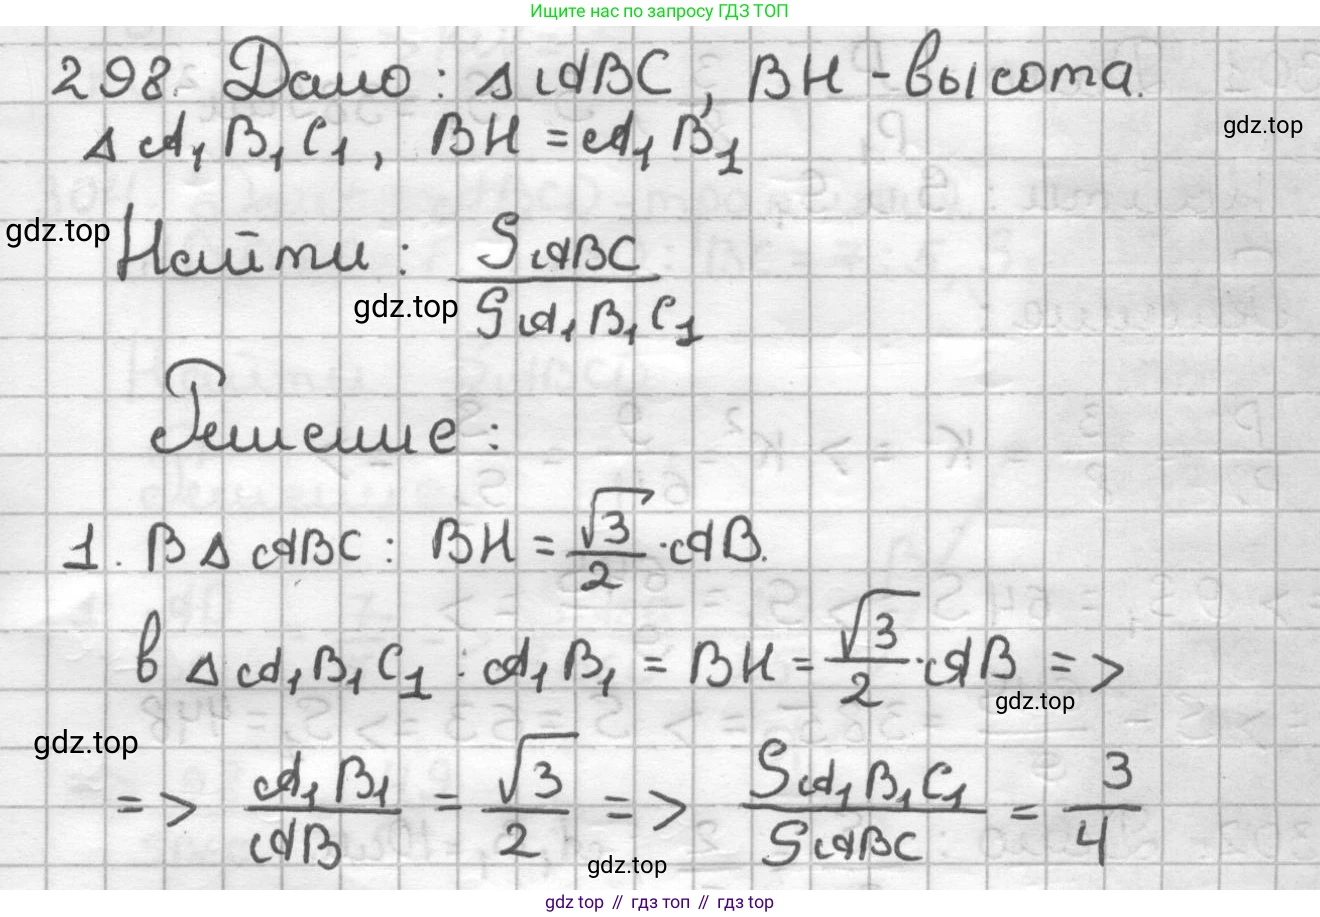 Ищите нас по запросу ГДЗ ТОП
298. Дано: Δ ABC, BH - высота.
gdz.top
Δ A₁B₁C₁, BH = A₁B₁
gdz.top
Найти: S ABC / S A₁B₁C₁
gdz.top
Решение:
1. В Δ ABC: BH = √3/2 · AB.
в Δ A₁B₁C₁: A₁B₁ = BH = √3/2 · AB =>
gdz.top
gdz.top
=> A₁B₁/AB = √3/2 => S A₁B₁C₁ / S ABC = 3/4
gdz.top
gdz top // гдз топ // gdz top